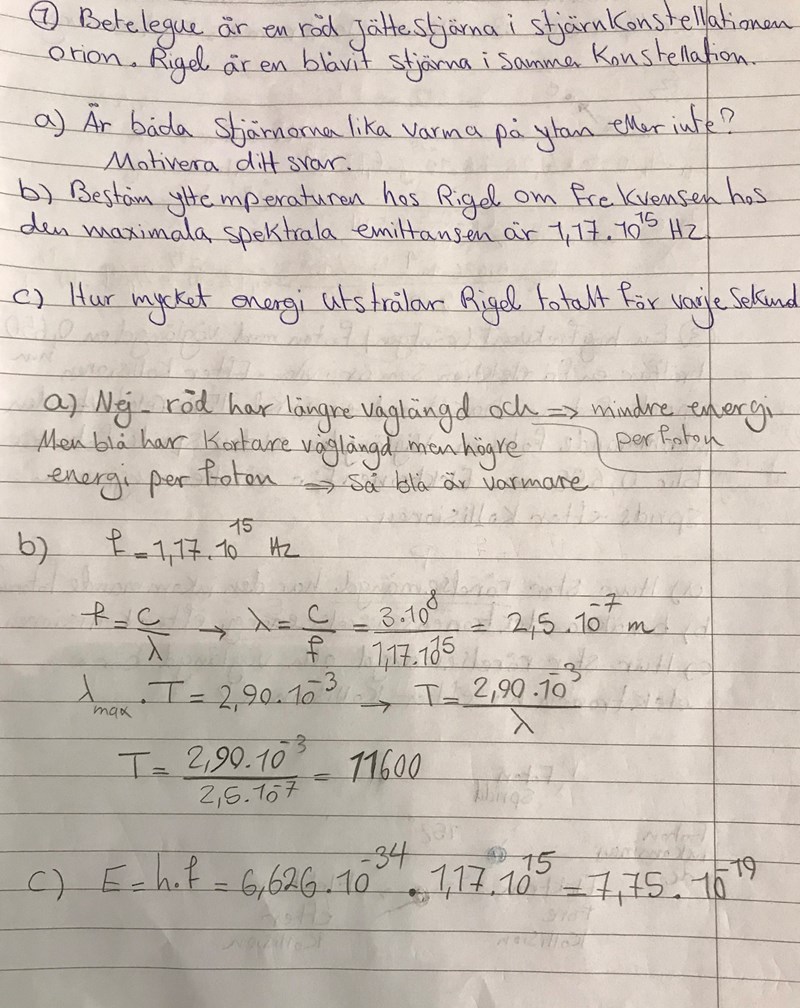 ⑦ Betelegue är en röd Jättestjärna i stjärnkonstellationen
orion. Rigel är en blåvit stjärna i samma Konstellation.
a) Är båda Stjärnorna lika varma på ytan eller inte?
Motivera ditt svar.
b) Bestäm yttemperaturen hos Rigel om frekvensen hos
den maximala spektrala emittansen är 1,17.10^15 Hz
c) Hur mycket energi utstrålar Rigel totalt för varje Sekund
a) Nej- röd har längre våglängd och => mindre energi
per foton
Men blå har Kortare våglängd men högre
energi per foton => Så blå är varmare
b) f = 1,17.10^15 Hz
f = c/λ → λ = c/f = 3.10^8/1,17.10^15 = 2,5.10^-7 m
λmax . T = 2,90.10^-3 → T = 2,90.10^-3/λ
T = 2,90.10^-3/2,5.10^-7 = 11600
c) E = h.f = 6,626.10^-34 . 1,17.10^15 = 7,75.10^-19